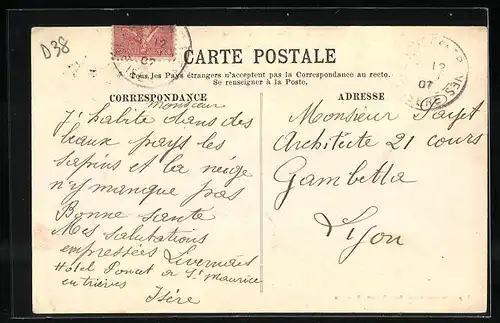 D38
12
07
CARTE POSTALE
Tous les Pays étrangers n'acceptent pas la Correspondance au recto.
Se renseigner à la Poste.
CORRESPONDANCE
Monsieur
J'habite dans des
beaux pays les
sapins et la neige
n'y manque pas
Bonne sante
Mes salutations
empressées
Hotel a St Maurice
en trièves
Isère
ADRESSE
12
07
Monsieur
Architecte 21 cours
Gambetta
Lyon